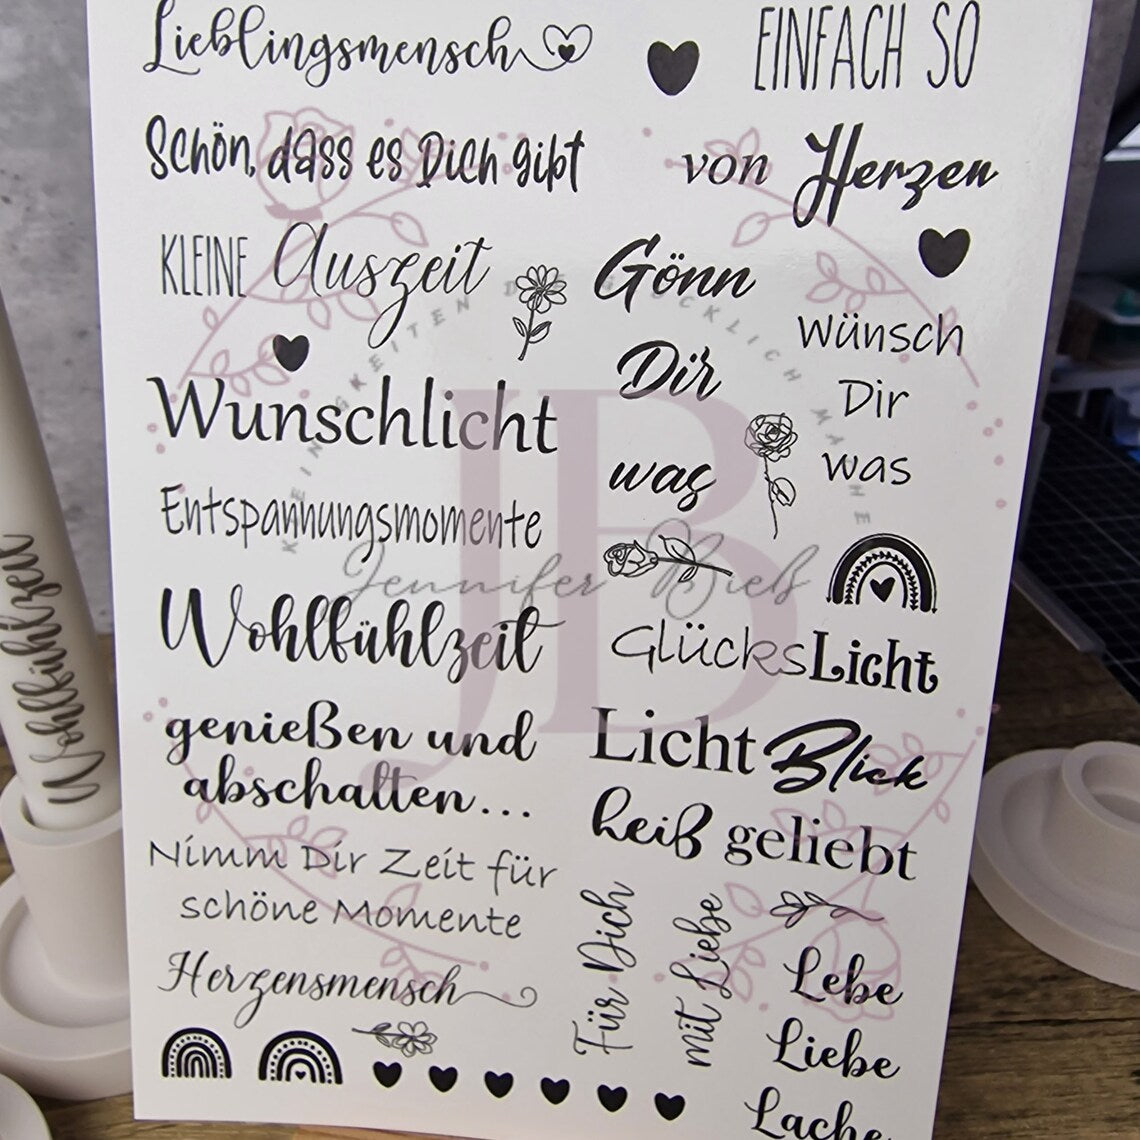 Lieblingsmensch
EINFACH SO
Schön, dass es Dich gibt
von Herzen
KLEINE Auszeit
Gönn
Dir
was
Wünsch
Dir
was
Wunschlicht
Entspannungsmomente
Wohlfühlzeit
GlücksLicht
genießen und
abschalten...
LichtBlick
heiß geliebt
Nimm Dir Zeit für
schöne Momente
Herzensmensch
Für Dich
mit Liebe
Lebe
Liebe
Lache
Wohlfühlzeit
KLEINIGKEITEN DIE GLÜCKLICH MACHEN
JB
Jennifer Bieß